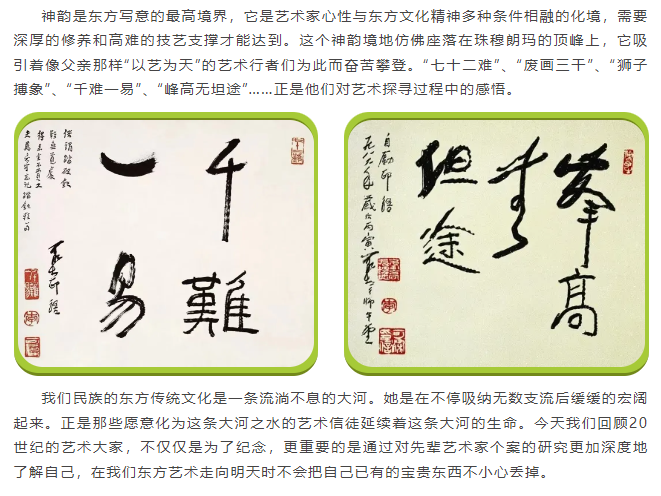 神韵是东方写意的最高境界，它是艺术家心性与东方文化精神多种条件相融的化境，需要
深厚的修养和高难的技艺支撑才能达到。这个神韵境地仿佛座落在珠穆朗玛的顶峰上，它吸
引着像父亲那样“以艺为天”的艺术行者们为此而奋苦攀登。“七十二难”、“废画三千”、“狮子
搏象”、“千难一易”、“峰高无坦途”……正是他们对艺术探寻过程中的感悟。
千難
一易
峯高
無
坦途
自勵印語
我们民族的东方传统文化是一条流淌不息的大河。她是在不停吸纳无数支流后缓缓的宏阔
起来。正是那些愿意化为这条大河之水的艺术信徒延续着这条大河的生命。今天我们回顾20
世纪的艺术大家，不仅仅是为了纪念，更重要的是通过对先辈艺术家个案的研究更加深度地
了解自己，在我们东方艺术走向明天时不会把自己已有的宝贵东西不小心丢掉。